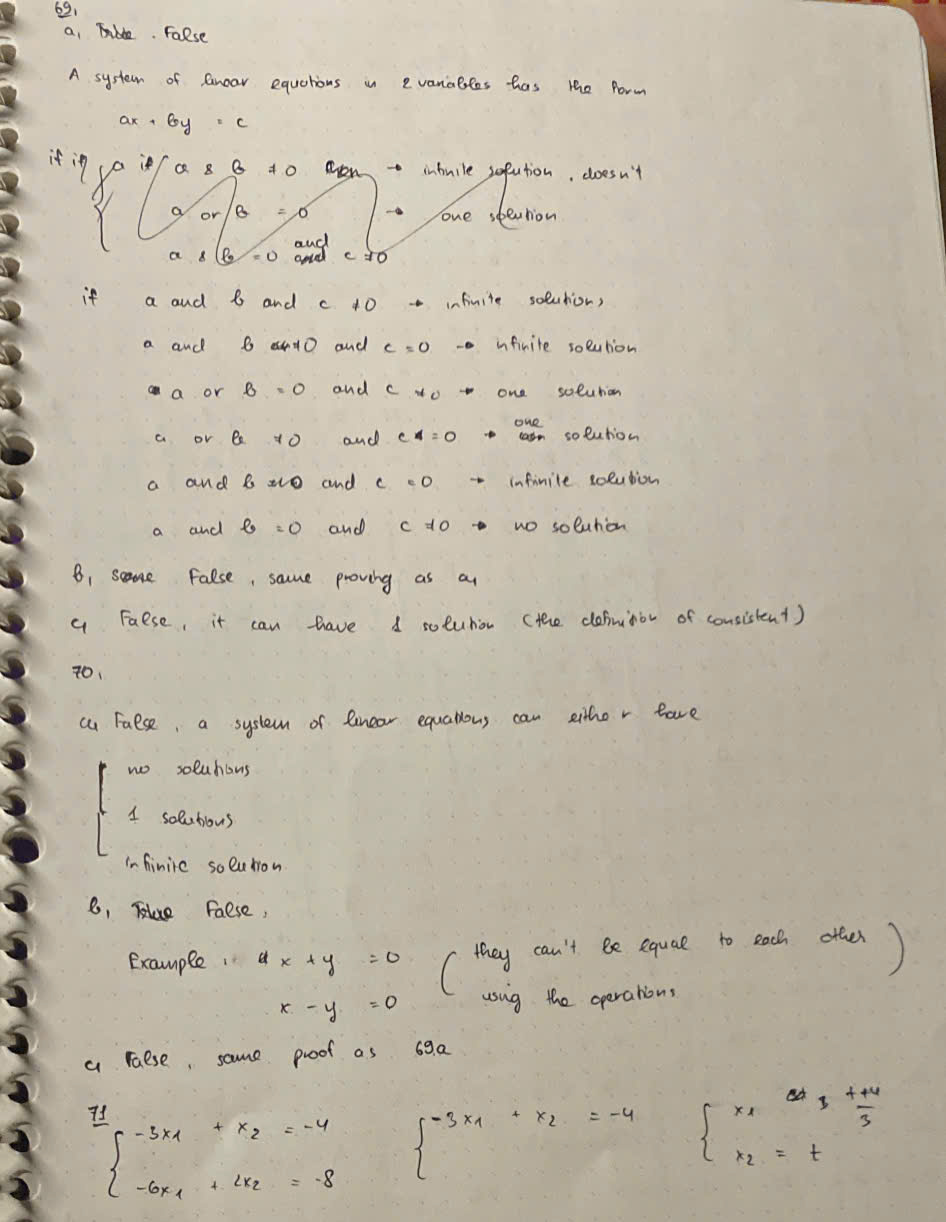 69,
a, False
A system of linear equations in 2 variables has the form
ax + by = c
if if a if a & b ≠ 0 then → infinite solution, doesn't
a or b = 0 → one solution
a & b = 0 and c ≠ 0
if a and b and c ≠ 0 → infinite solutions
a and b ≠ 0 and c = 0 → infinite solution
a or b = 0 and c ≠ 0 → one solution
a or b ≠ 0 and c = 0 → one solution
a and b = 0 and c = 0 → infinite solution
a and b = 0 and c ≠ 0 → no solution
b, False, same proving as a,
c, False, it can have 1 solution (the definition of consistent)
70,
a, False, a system of linear equations can either have
no solutions
1 solutions
infinite solution
b, False,
Example: x + y = 0 (they can't be equal to each other
x - y = 0 using the operations)
c, False, same proof as 69.a
71
-3x1 + x2 = -4 -3x1 + x2 = -4 x1 t+4/3
-6x1 + 2x2 = -8 x2 = t